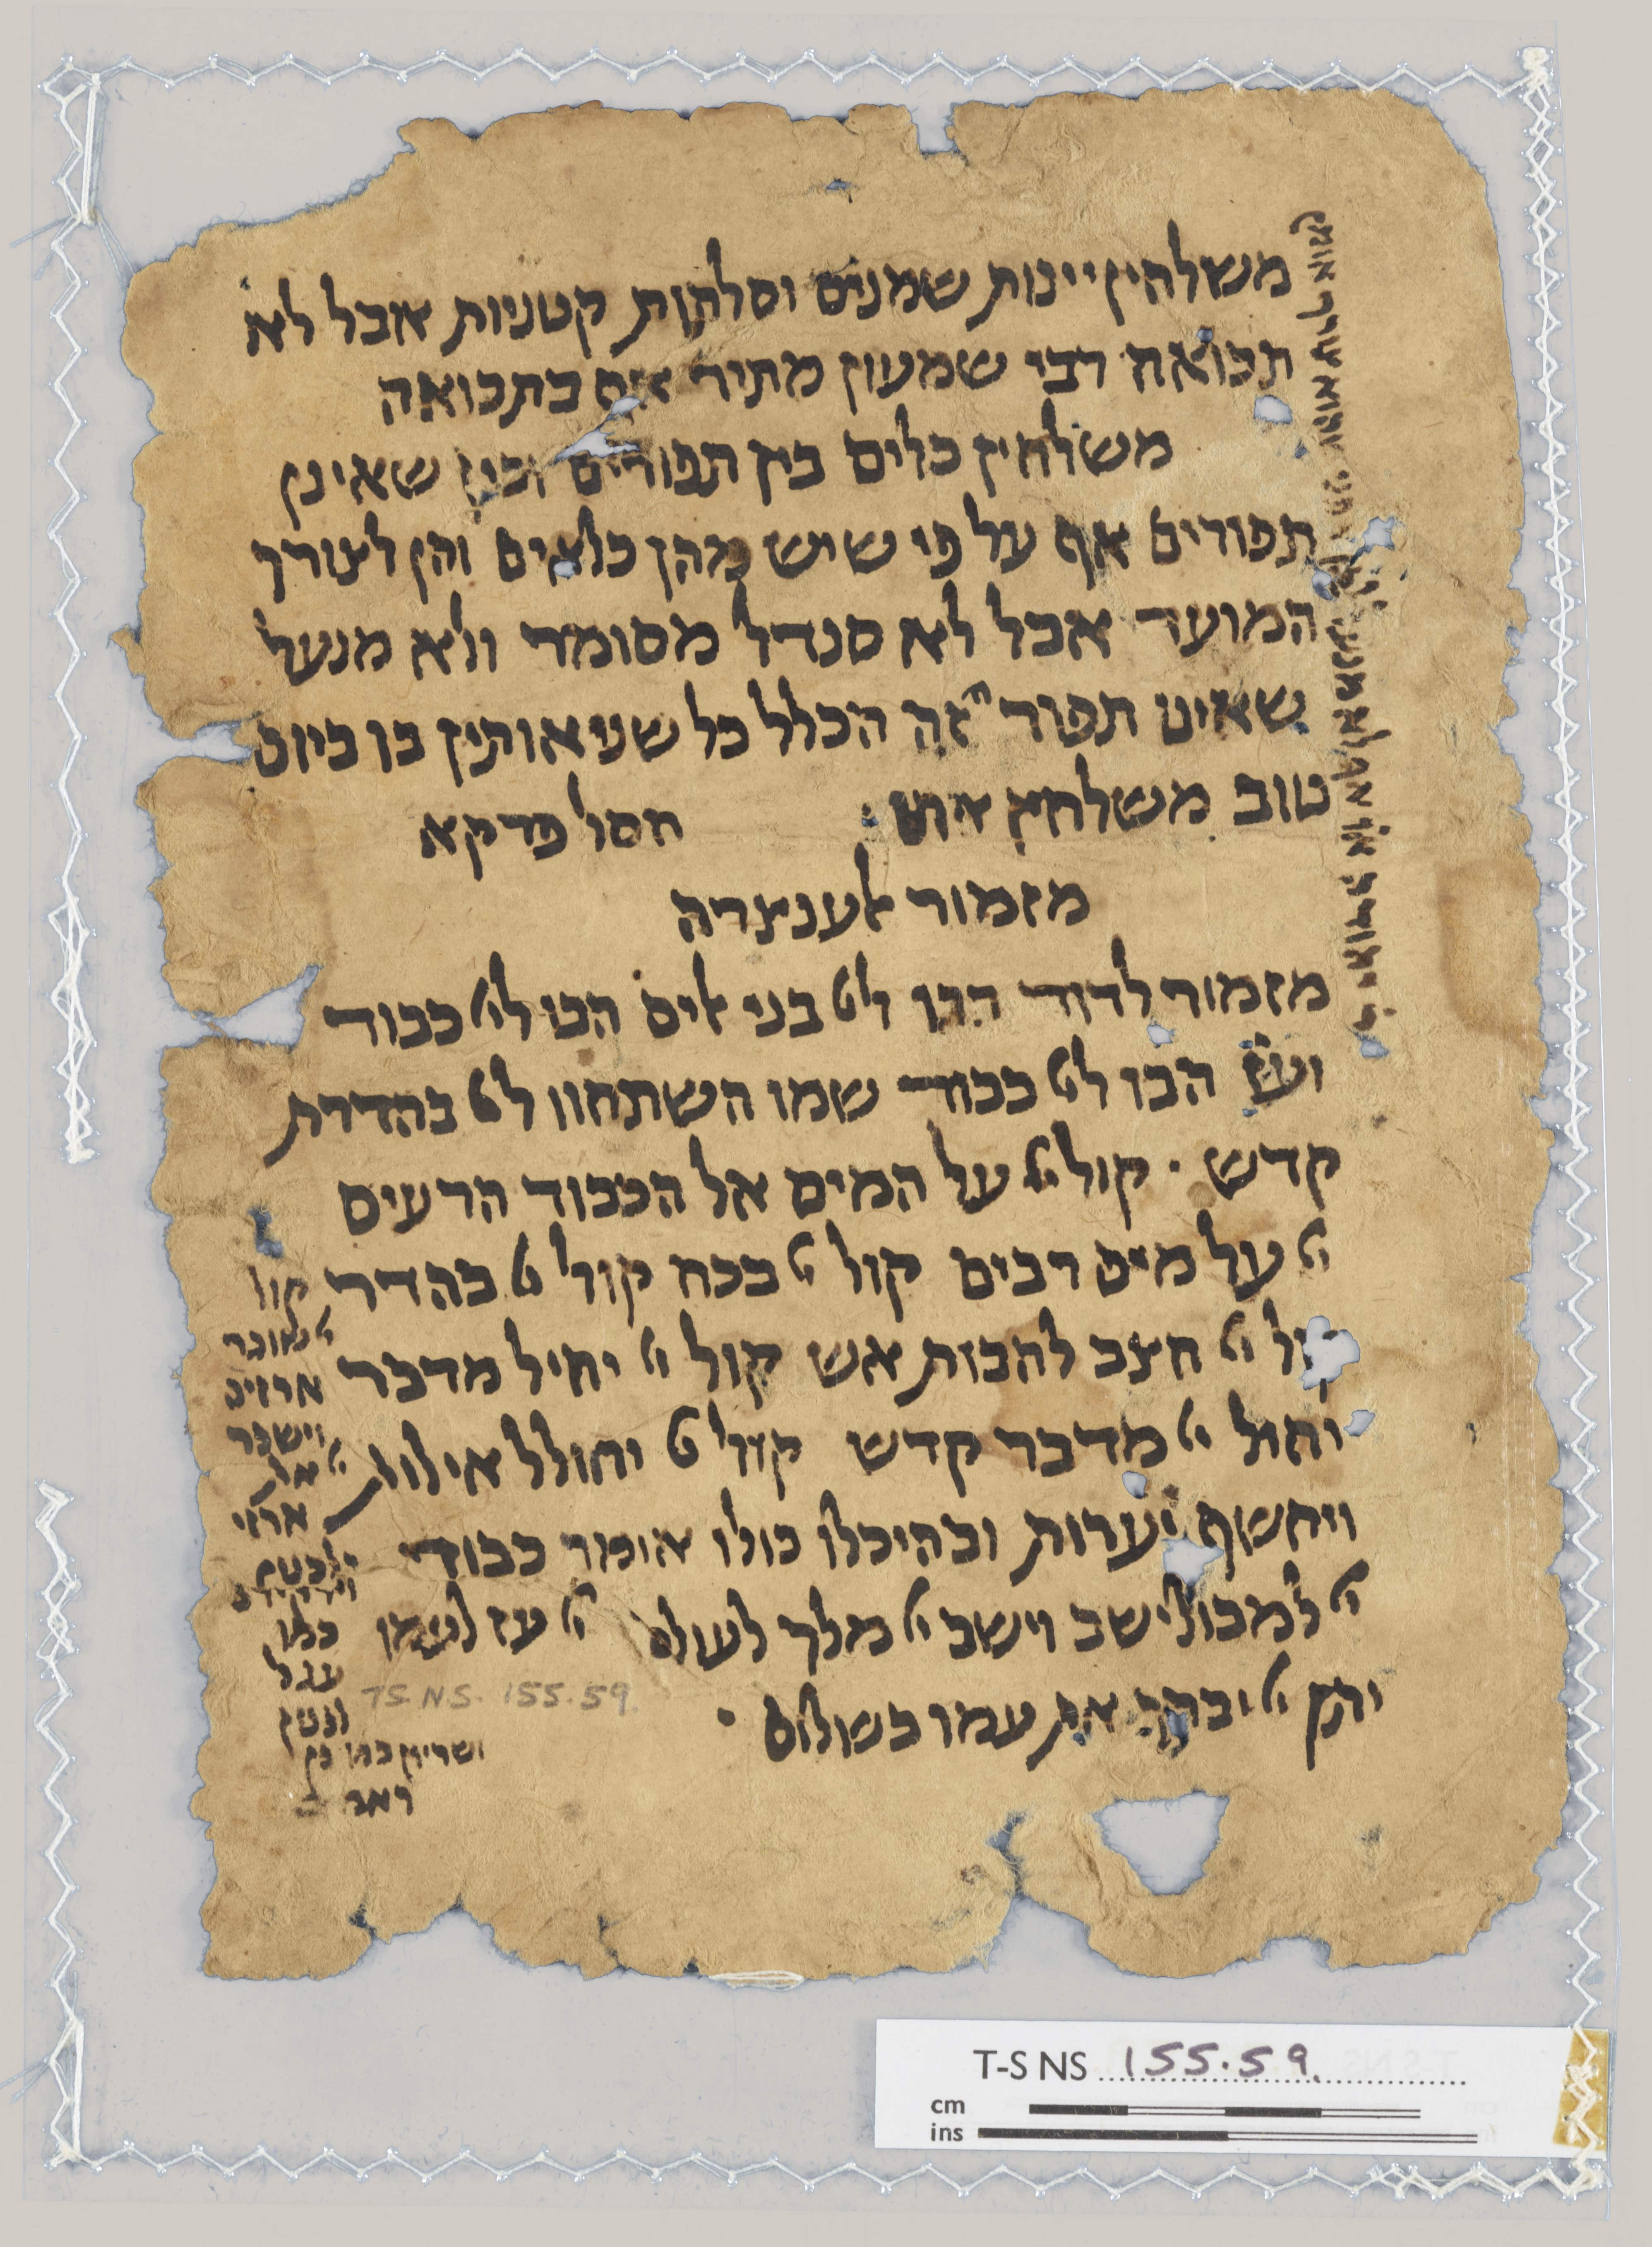 משלחין יינות שמנים וסלתות קטניות אבל לא
תבואה רבי שמעון מתיר אף בתבואה
משלחין כלים בין תפורים ובין שאינן
תפורים אף על פי שיש מהן כלאים והן לצורך
המועד אבל לא סנדל מסומר ולא מנעל
שאינו תפור זה הכלל כל שניאותין בו ביום
טוב משלחין אותו חסל פרקא
מזמור לענצרה
מזמור לדוד הבו לי׳ בני אלים הבו לי׳ כבוד
ועוז הבו לי׳ כבוד שמו השתחוו לי׳ בהדרת
קדש · קול י׳ על המים אל הכבוד הרעים
י׳ על מים רבים קול י׳ בכח קול י׳ בהדר קול
י׳ שובר
ארזים
וישבר
י׳ את
ארזי
וירקידם
כמו
עגל
ושריון כמו בן
ראמ
קול י׳ חצב להבות אש קול י׳ יחיל מדבר
יחיל י׳ מדבר קדש קול י׳ יחולל אילות
ויחשף יערות ובהיכלו כולו אומר כבוד
י׳ למבול ישב וישב י׳ מלך לעולם י׳ עז לעמו
יתן י׳ יברך את עמו בשלום ·
T.S. N.S. 155.59.
T-S NS 155.59.
cm
ins